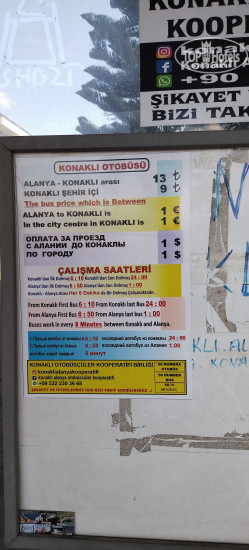 KONAK
KOOPER
Konak
TOP Hotels
+90
ŞİKAYET
BİZİ TAK
KONAKLI OTOBÜSÜ
ALANYA - KONAKLI arası 13 ₺
KONAKLI ŞEHİR İÇİ 9 ₺
The bus price which is Between
ALANYA to KONAKLI is 1 €
In the city centre in KONAKLI is 1 €
ОПЛАТА ЗА ПРОЕЗД
С АЛАНИИ ДО КОНАКЛЫ 1 $
ПО ГОРОДУ 1 $
ÇALIŞMA SAATLERİ
Konaklı'dan İlk Dolmuş 6 : 10 Konaklı'dan Son Dolmuş 24 : 00
Alanya'dan İlk Dolmuş 6 : 50 Alanya'dan Son Dolmuş 1 : 00
Konaklı - Alanya Arası Her 8 Dakika da Bir Dolmuş Çalışmaktadır.
From Konaklı First Bus 6 : 10 From Konaklı last Bus 24 : 00
From Alanya First Bus 6 : 50 From Alanya last Bus 1 : 00
Buses work in every 8 Minutes between Konakli and Alanya.
6 : 10 последний автобус из конаклы 24 : 00
6 : 50 последний автобус из Алания 1 : 00
8 минут
KONAKLI OTOBÜSÇÜLER KOOPERATİFİ BİRLİĞİ
konaklialanyakooperatifi
konaklı alanya otobüscüler kooperatifi
+90 532 230 36 68
ŞİKAYET VE İSTEKLERİNİZ İÇİN BİZİ TAKİP EDEBİLİRSİNİZ
KLI.
KONA